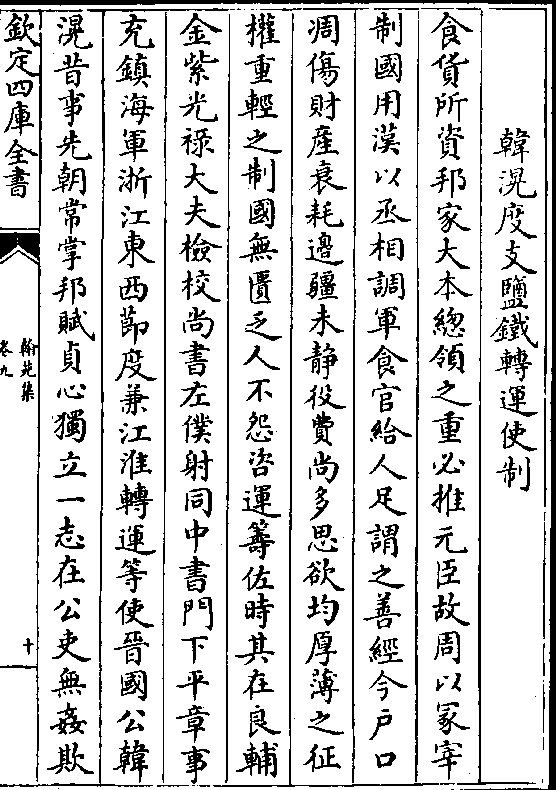 韓滉度支鹽鐵轉運使制
食貨所資邦家大本總領之重必推元臣故周以冡宰
制國用漢以丞相調軍食官給人足謂之善經今戶口
凋傷財産衰耗邊疆未静役費尚多思欲均厚薄之征
權重輕之制國無匱乏人不怨咨運籌佐時其在良輔
金紫光禄大夫檢校尚書左僕射同中書門下平章事
充鎮海軍浙江東西節度兼江淮轉運等使晉國公韓
滉昔事先朝常掌邦賦貞心獨立一志在公吏無姦欺
欽定四庫全書
翰苑集
卷九
十